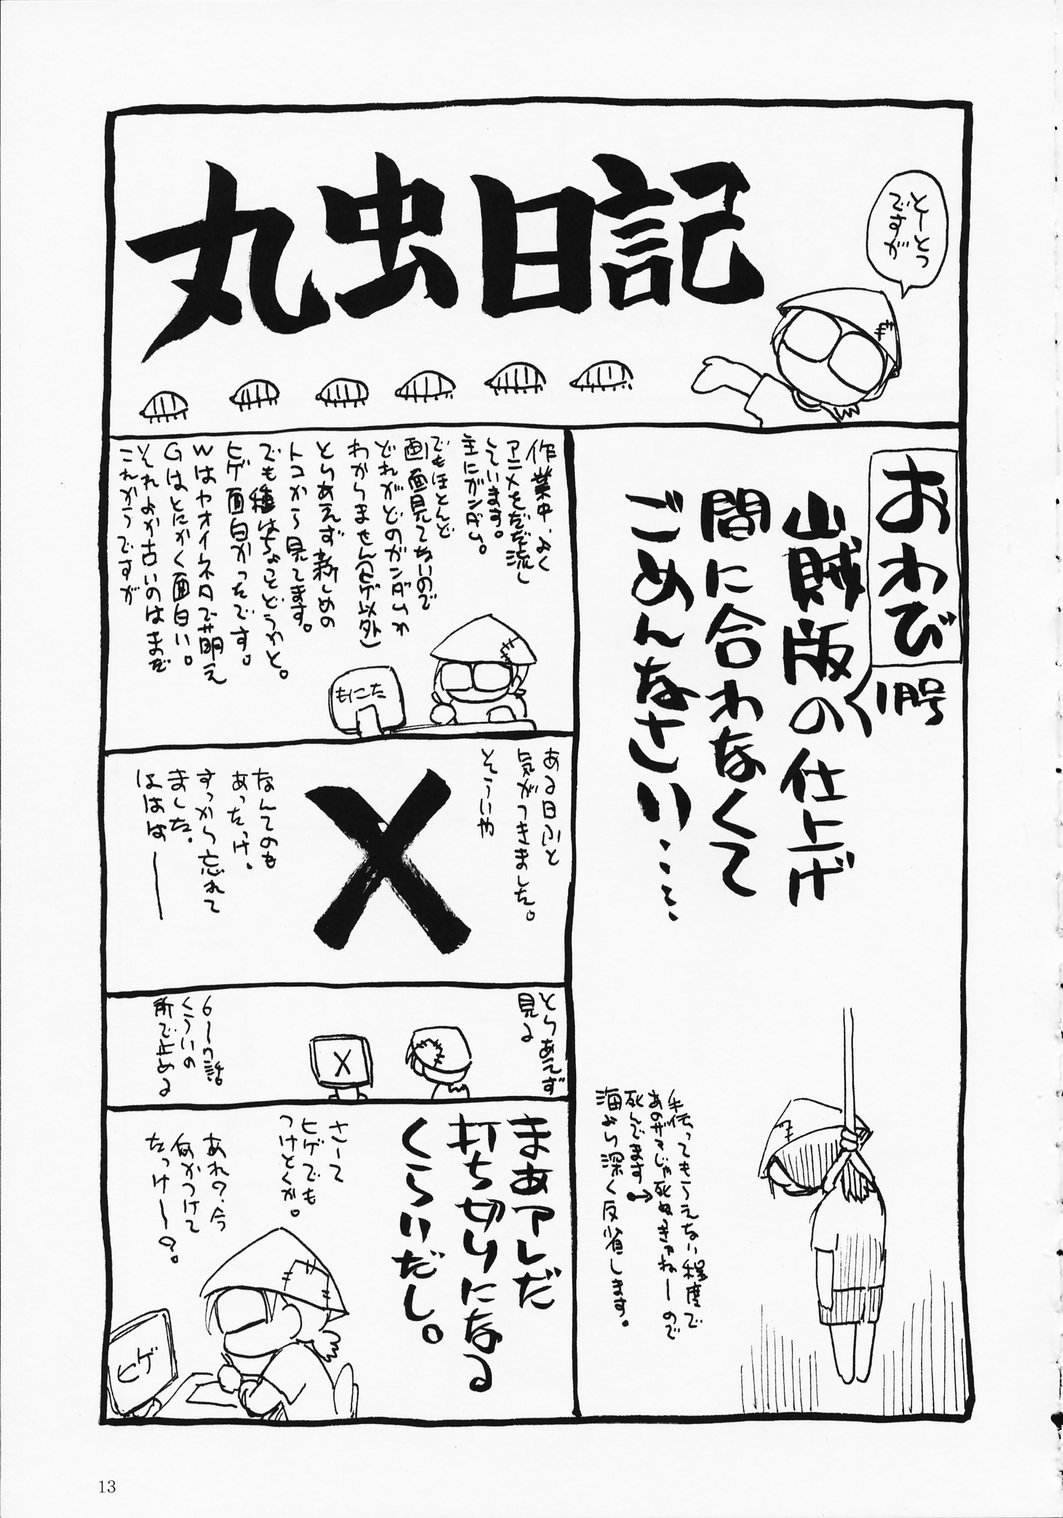 丸虫日記
とーとつ
ですが
おわび
1号
山賊版の仕上げ
間に合わなくて
ごめんなさい…て…
手伝ってもらえない程度で
死んでます
海より深く反省します。
作業中、よく
アニメをだだ流し
しています。
主にガンダム。
でもほとんど
画面見てないので
どれがどのガンダムか
わかりません(ヒゲ以外)
とりあえず新しめの
トコから見てます。
でも種はちょっとどうかと。
ヒゲ面白かったです。
Wはヤオイネタで萌え
Gはとにかく面白い。
それよか古いのはまだ
これからですが
もにた
ある日ふと
気がつきました。
そういや
X
なんてのも
あったっけ。
すっから忘れて
ました。
ははは――
とりあえず
見る
X
6〜7話
くらいの
所で止める
まあアレだ
打ち切りになる
くらいだし。
さーて
ヒゲでも
つけとくか。
あれ?今
何かつけて
たっけ〜?。
ヒゲ
13